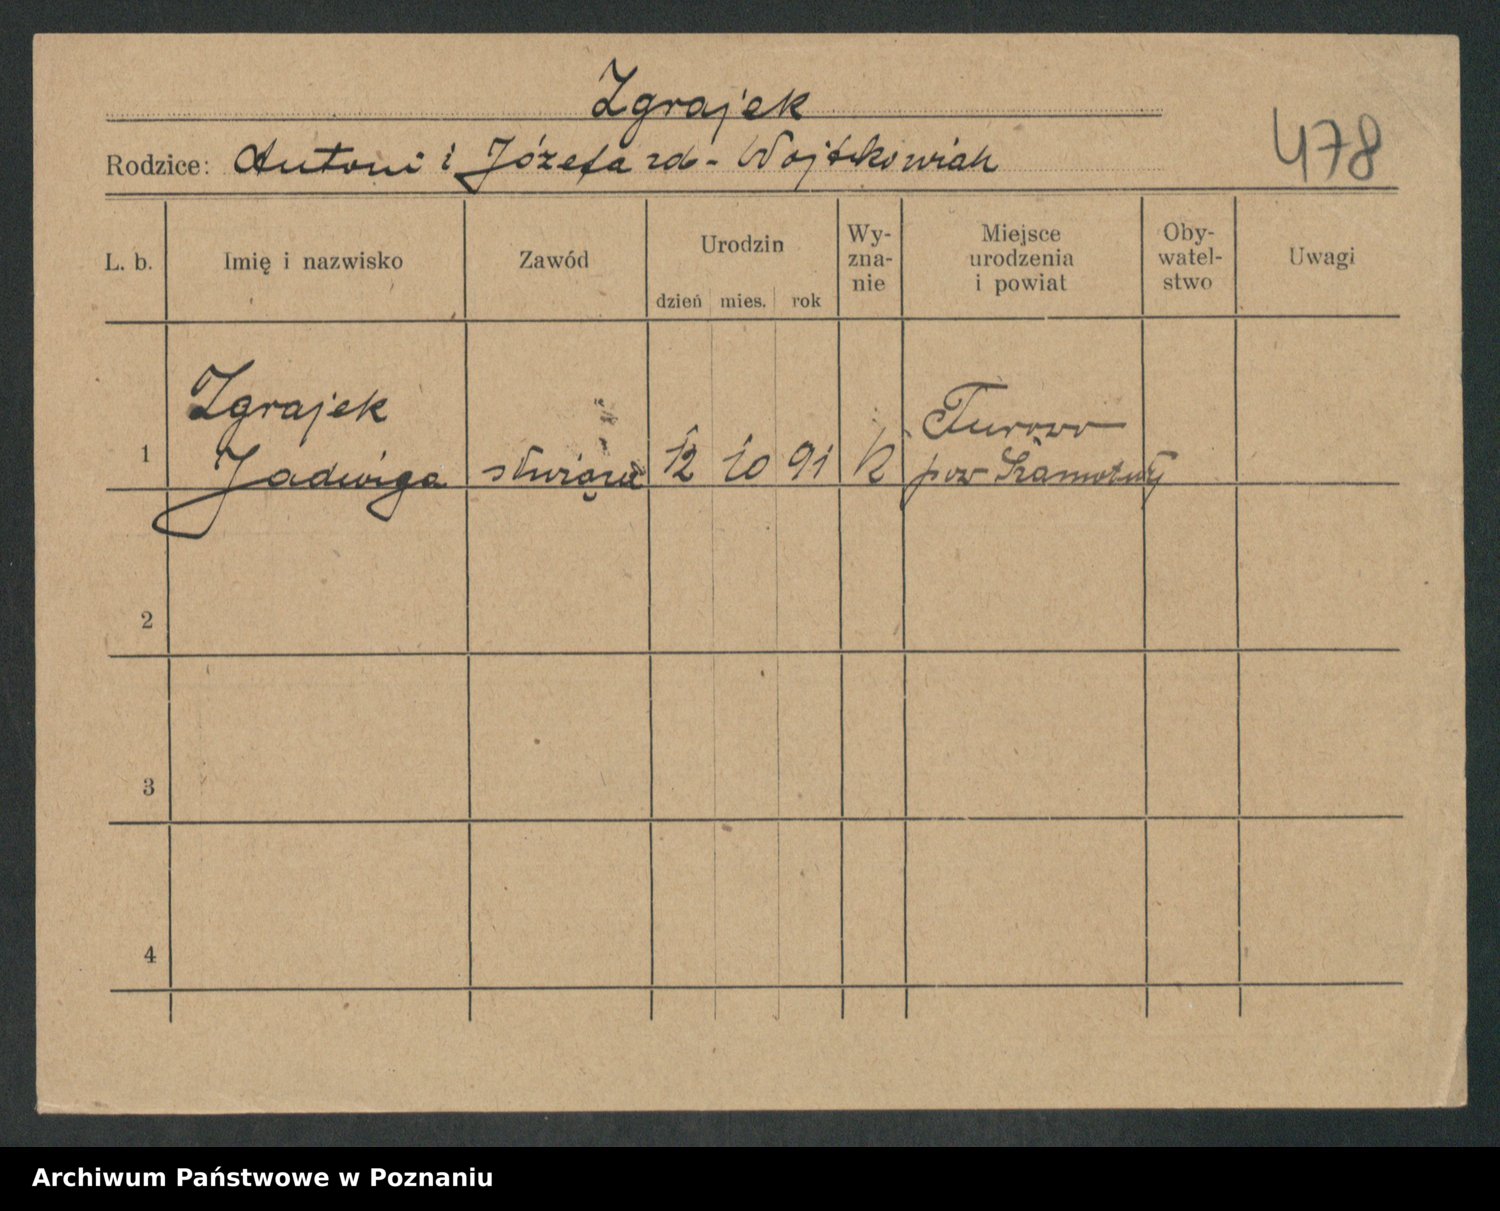 Zgrajek
478
Rodzice: Antoni i Józefa zd. Wojtkowiak
L. b.
Imię i nazwisko
Zawód
Urodzin
dzień mies. rok
Wy-
zna-
nie
Miejsce
urodzenia
i powiat
Oby-
watel-
stwo
Uwagi
Zgrajek
1 Jadwiga służąca 12 10 91 k
Turowo
pow Szamotuły
2
3
4
Archiwum Państwowe w Poznaniu